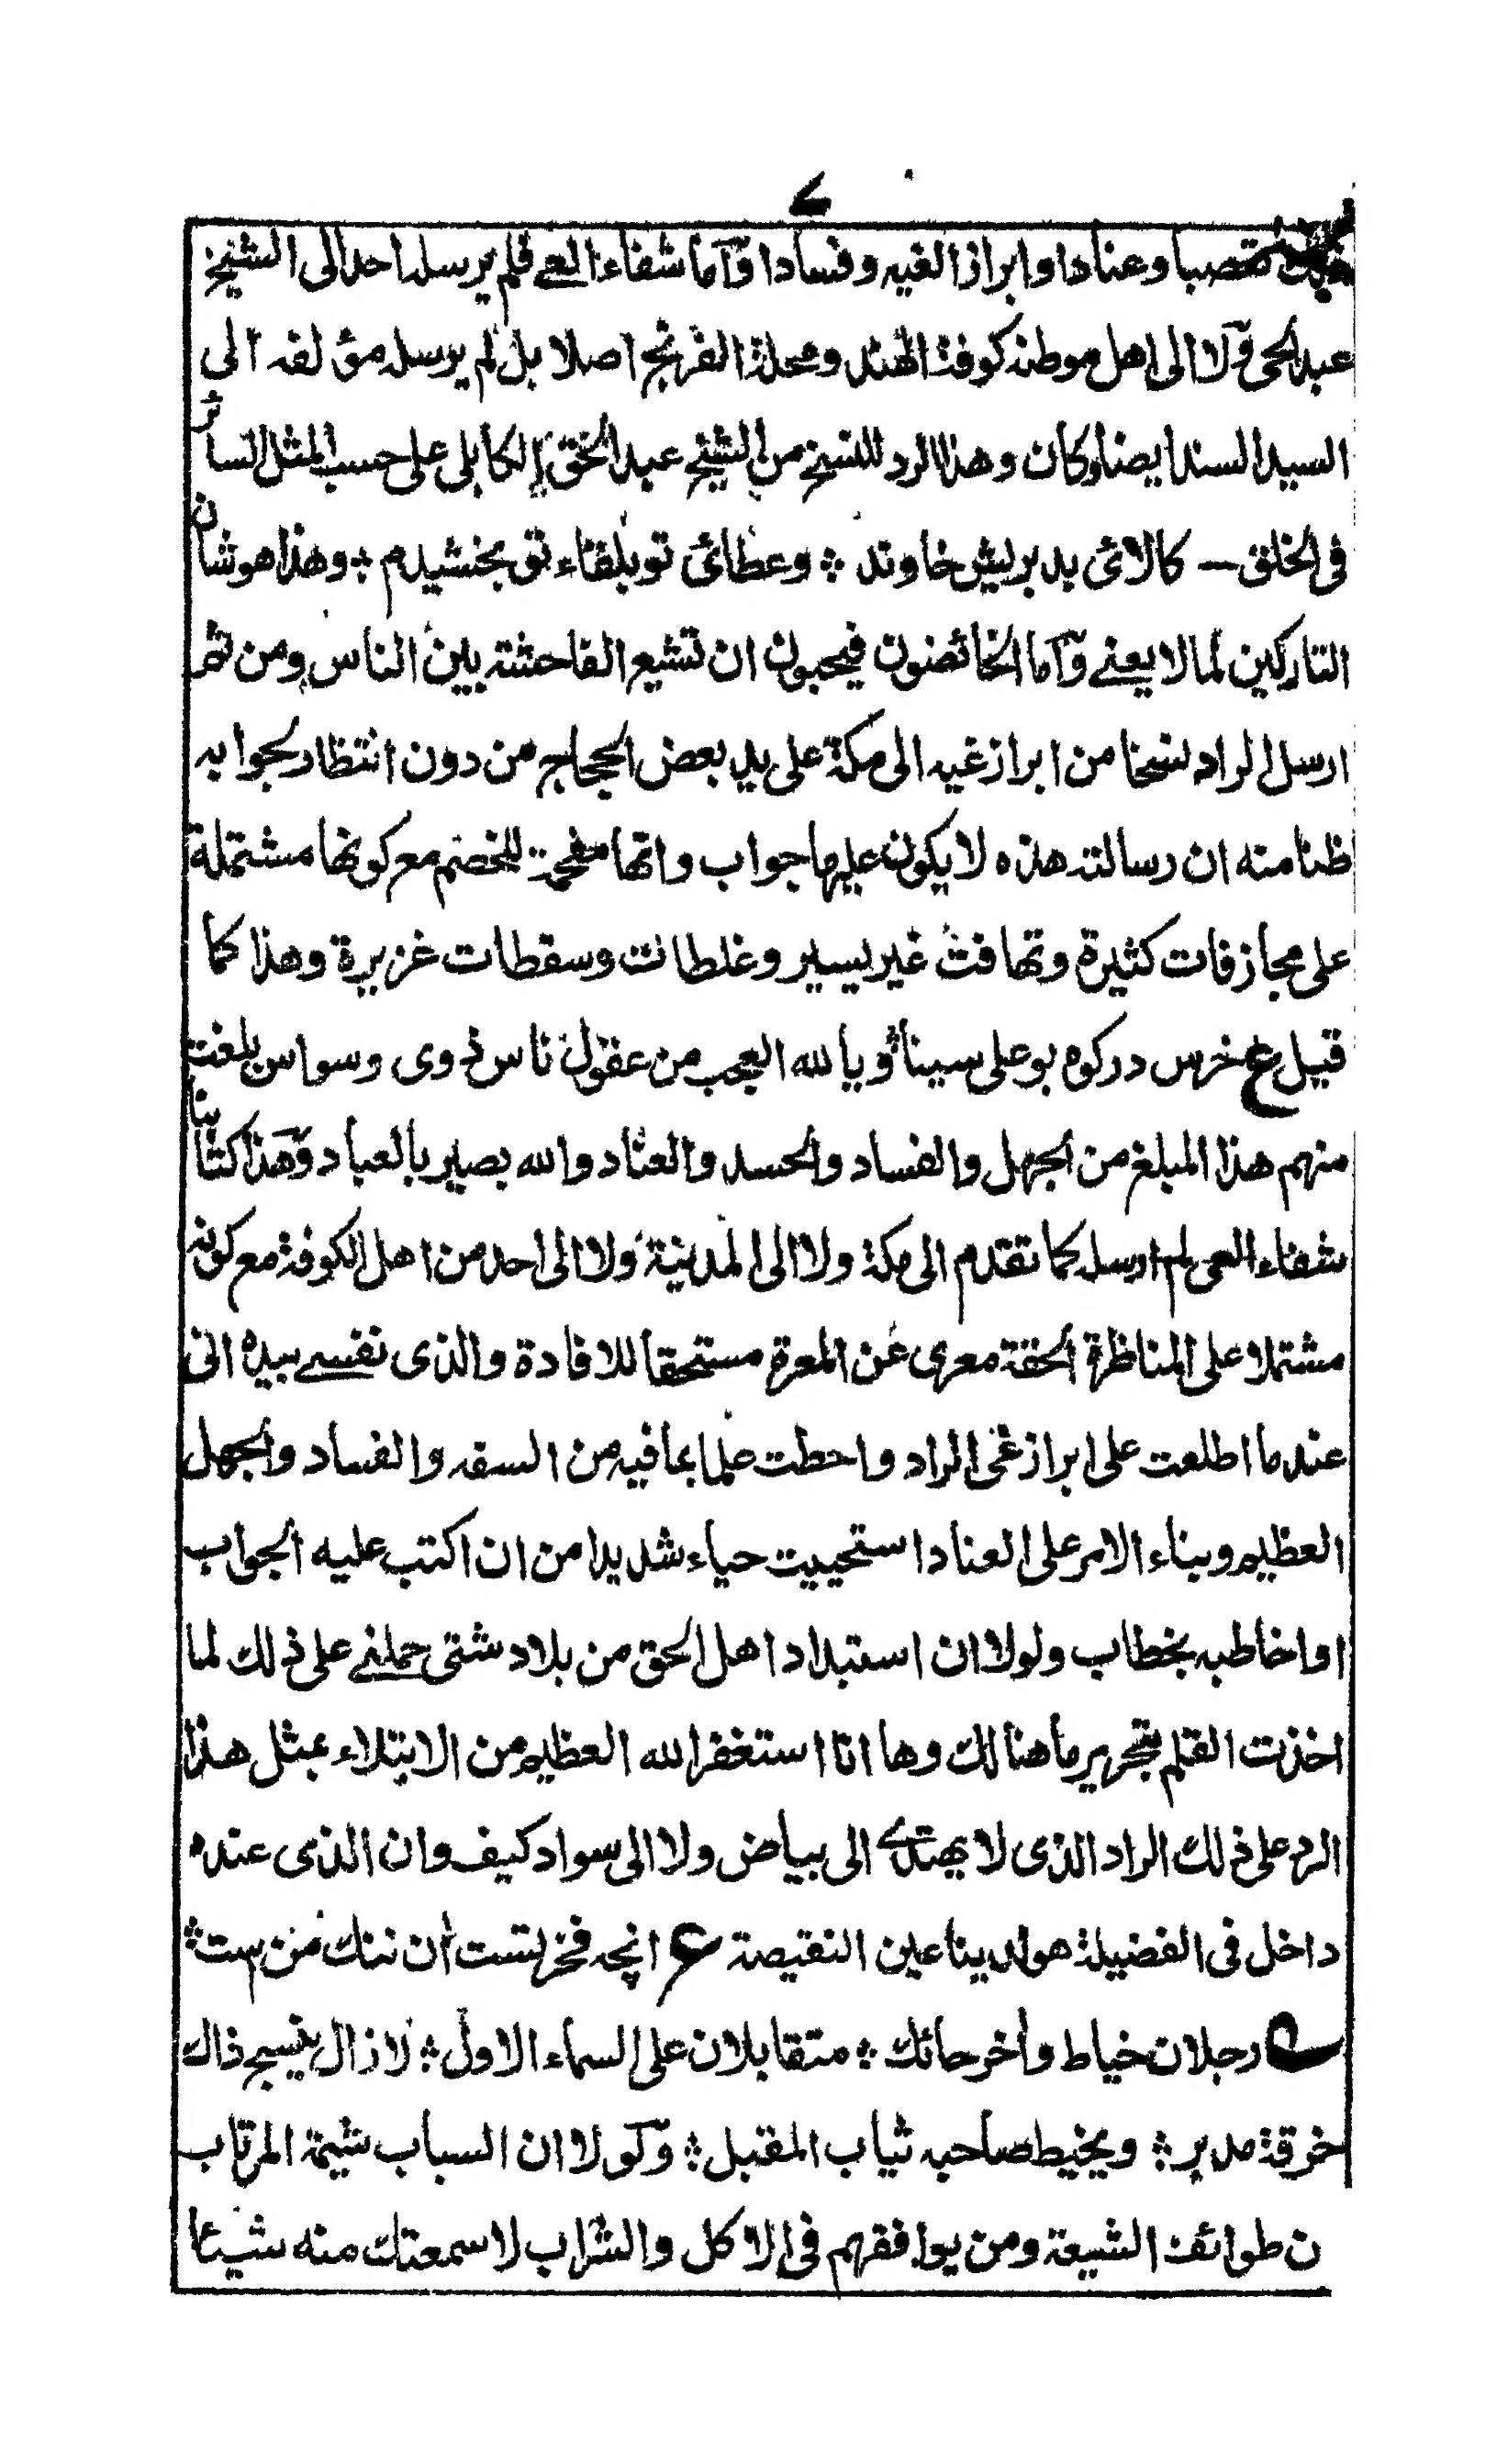 ٧
تعصبا وعنادا وابراز الغيه وفسادا وآما شفاء العے فلم يرسله احد الى الشيخ
عبد الحى ولا الى اهل موطنه كوفة الهند ومحلة الفرنج اصلا بل لم يرسله مؤلفه الى
السيد السند ايضا وكان وهذا الرد للنسخ من الشيخ عبد الحق الكابلى على حسب المثل السائر
فى الخلق — كالائ بد بريش خاوند ؞ وعطائ تو بلقاء تو بخشيدم ؞ وهذا هو شان
التاركين لما لا يعنے وآما الخائضون فيحبون ان تشيع الفاحشة بين الناس ومن ثم
ارسل الراد نسخا من ابراز غيه الى مكة على يد بعض الحجاج من دون انتظار لجوابه
ظنا منه ان رسالته هذه لا يكون عليها جواب وانها مفحمة للخصم مع كونها مشتملة
على مجازفات كثيرة وتهافت غير يسير وغلطات وسقطات غزيرة وهذا كما
قيل ع خرس در كوه بو على سينا ويا لله العجب من عقول ناس ذوى وسواس بلغت
منهم هذا المبلغ من الجهل والفساد والحسد والعناد والله بصير بالعباد وهذا كتابنا
شفاء العى لم ارسله كما تقدم الى مكة ولا الى المدينة ولا الى احد من اهل الكوفة مع كونه
مشتملا على المناظرة الحقة معرى عن المعرة مستحقا للافادة والذى نفسے بيده انى
عند ما اطلعت على ابراز غى الراد واحطت علما بما فيه من السفه والفساد والجهل
العظيم وبناء الامر على العناد استحييت حياء شديدا من ان اكتب عليه الجواب
او اخاطبه بخطاب ولولا ان استبداد اهل الحق من بلاد شتى حملنے على ذلك لما
اخذت القلم بتحرير ما هنالك وها انا استغفر الله العظيم من الابتلاء بمثل هذا
الرد على ذلك الراد الذى لا يهتدے الى بياض ولا الى سواد كيف وان الذى عنده
داخل فى الفضيلة هو لدينا عين النقيصة ع انچه فخر تست آن ننك من ست ؞
رجلان خياط وأخر حائك ؞ متقابلان على السماء الاول ؞ لا زال ينسج ذاك
خرقة مدبر ؞ ويخيط صاحبه ثياب المقبل ؞ ولولا ان السباب شيمة المرتاب
ن طوائف الشيعة ومن يوافقهم فى الاكل والشراب لاسمعتك منه شيئا